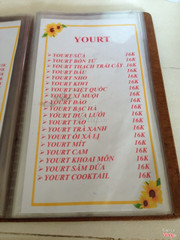 YOURT
YOURT SỮA 16K
YOURT BÓN TỪ 16K
YOURT THẠCH TRÁI CÂY 16K
YOURT DÂU 16K
YOURT NHO 16K
YOURT KIWI 16K
YOURT VIỆT QUỐC 16K
YOURT XÍ MUỘI 16K
YOURT ĐÀO 16K
YOURT BẠC HÀ 16K
YOURT DƯA LƯỚI 16K
YOURT TÁO 16K
YOURT TRÀ XANH 16K
YOURT ỔI XÁ LỊ 16K
YOURT MÍT 16K
YOURT CAM 16K
YOURT KHOAI MÔN 16K
YOURT SẦM DỨA 16K
YOURT COOKTAIL 16K